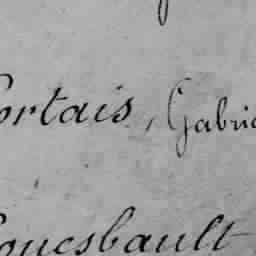 ortais, Gabri
ouesbault